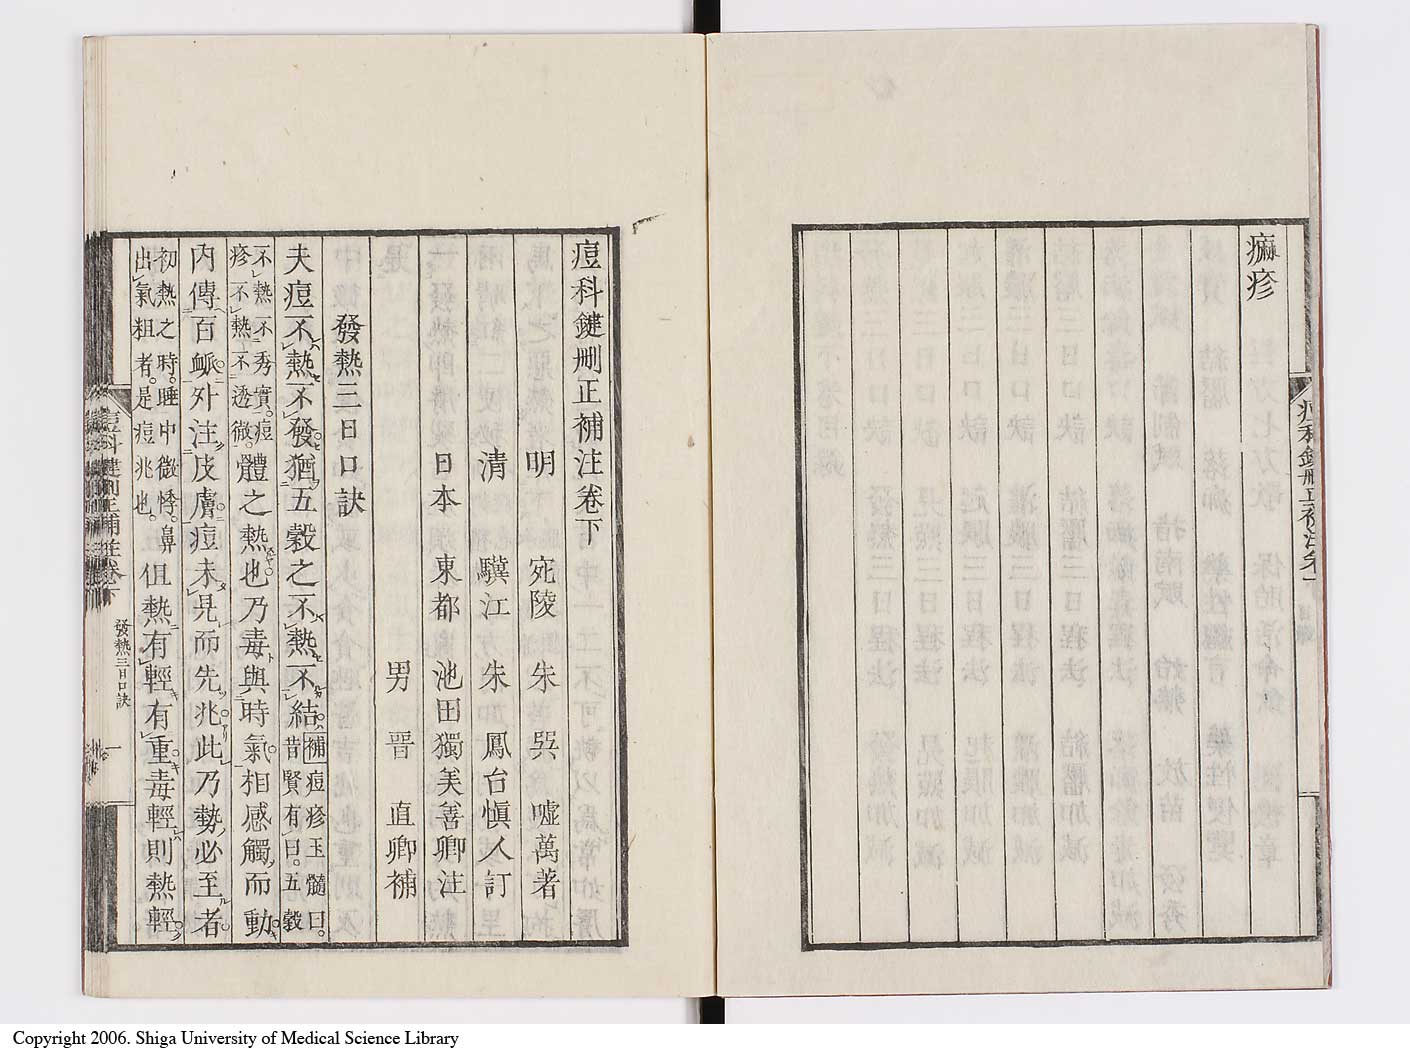 痲疹
痘科鍵刪正補注卷下
明　宛陵　朱　巽　嘘萬著
清　驥江　朱　鳳台愼人訂
日本　東都　池田獨美善卿注
男　晋　直卿補
發熱三日口訣
夫痘不熱不發猶五穀之不熱不結補痘疹玉髓曰。昔賢有曰。五穀
不熱不秀實。痘疹不熱不透徹。體之熱也乃毒與時氣相感觸而動
内傳百衇外注皮膚痘未見而先兆此乃勢必至者
初熱之時。睡中微悸。鼻出氣粗者。是痘兆也。但熱有輕有重毒輕則熱輕
痘科鍵刪正補註卷下
發熱三日口訣
一
Copyright 2006. Shiga University of Medical Science Library